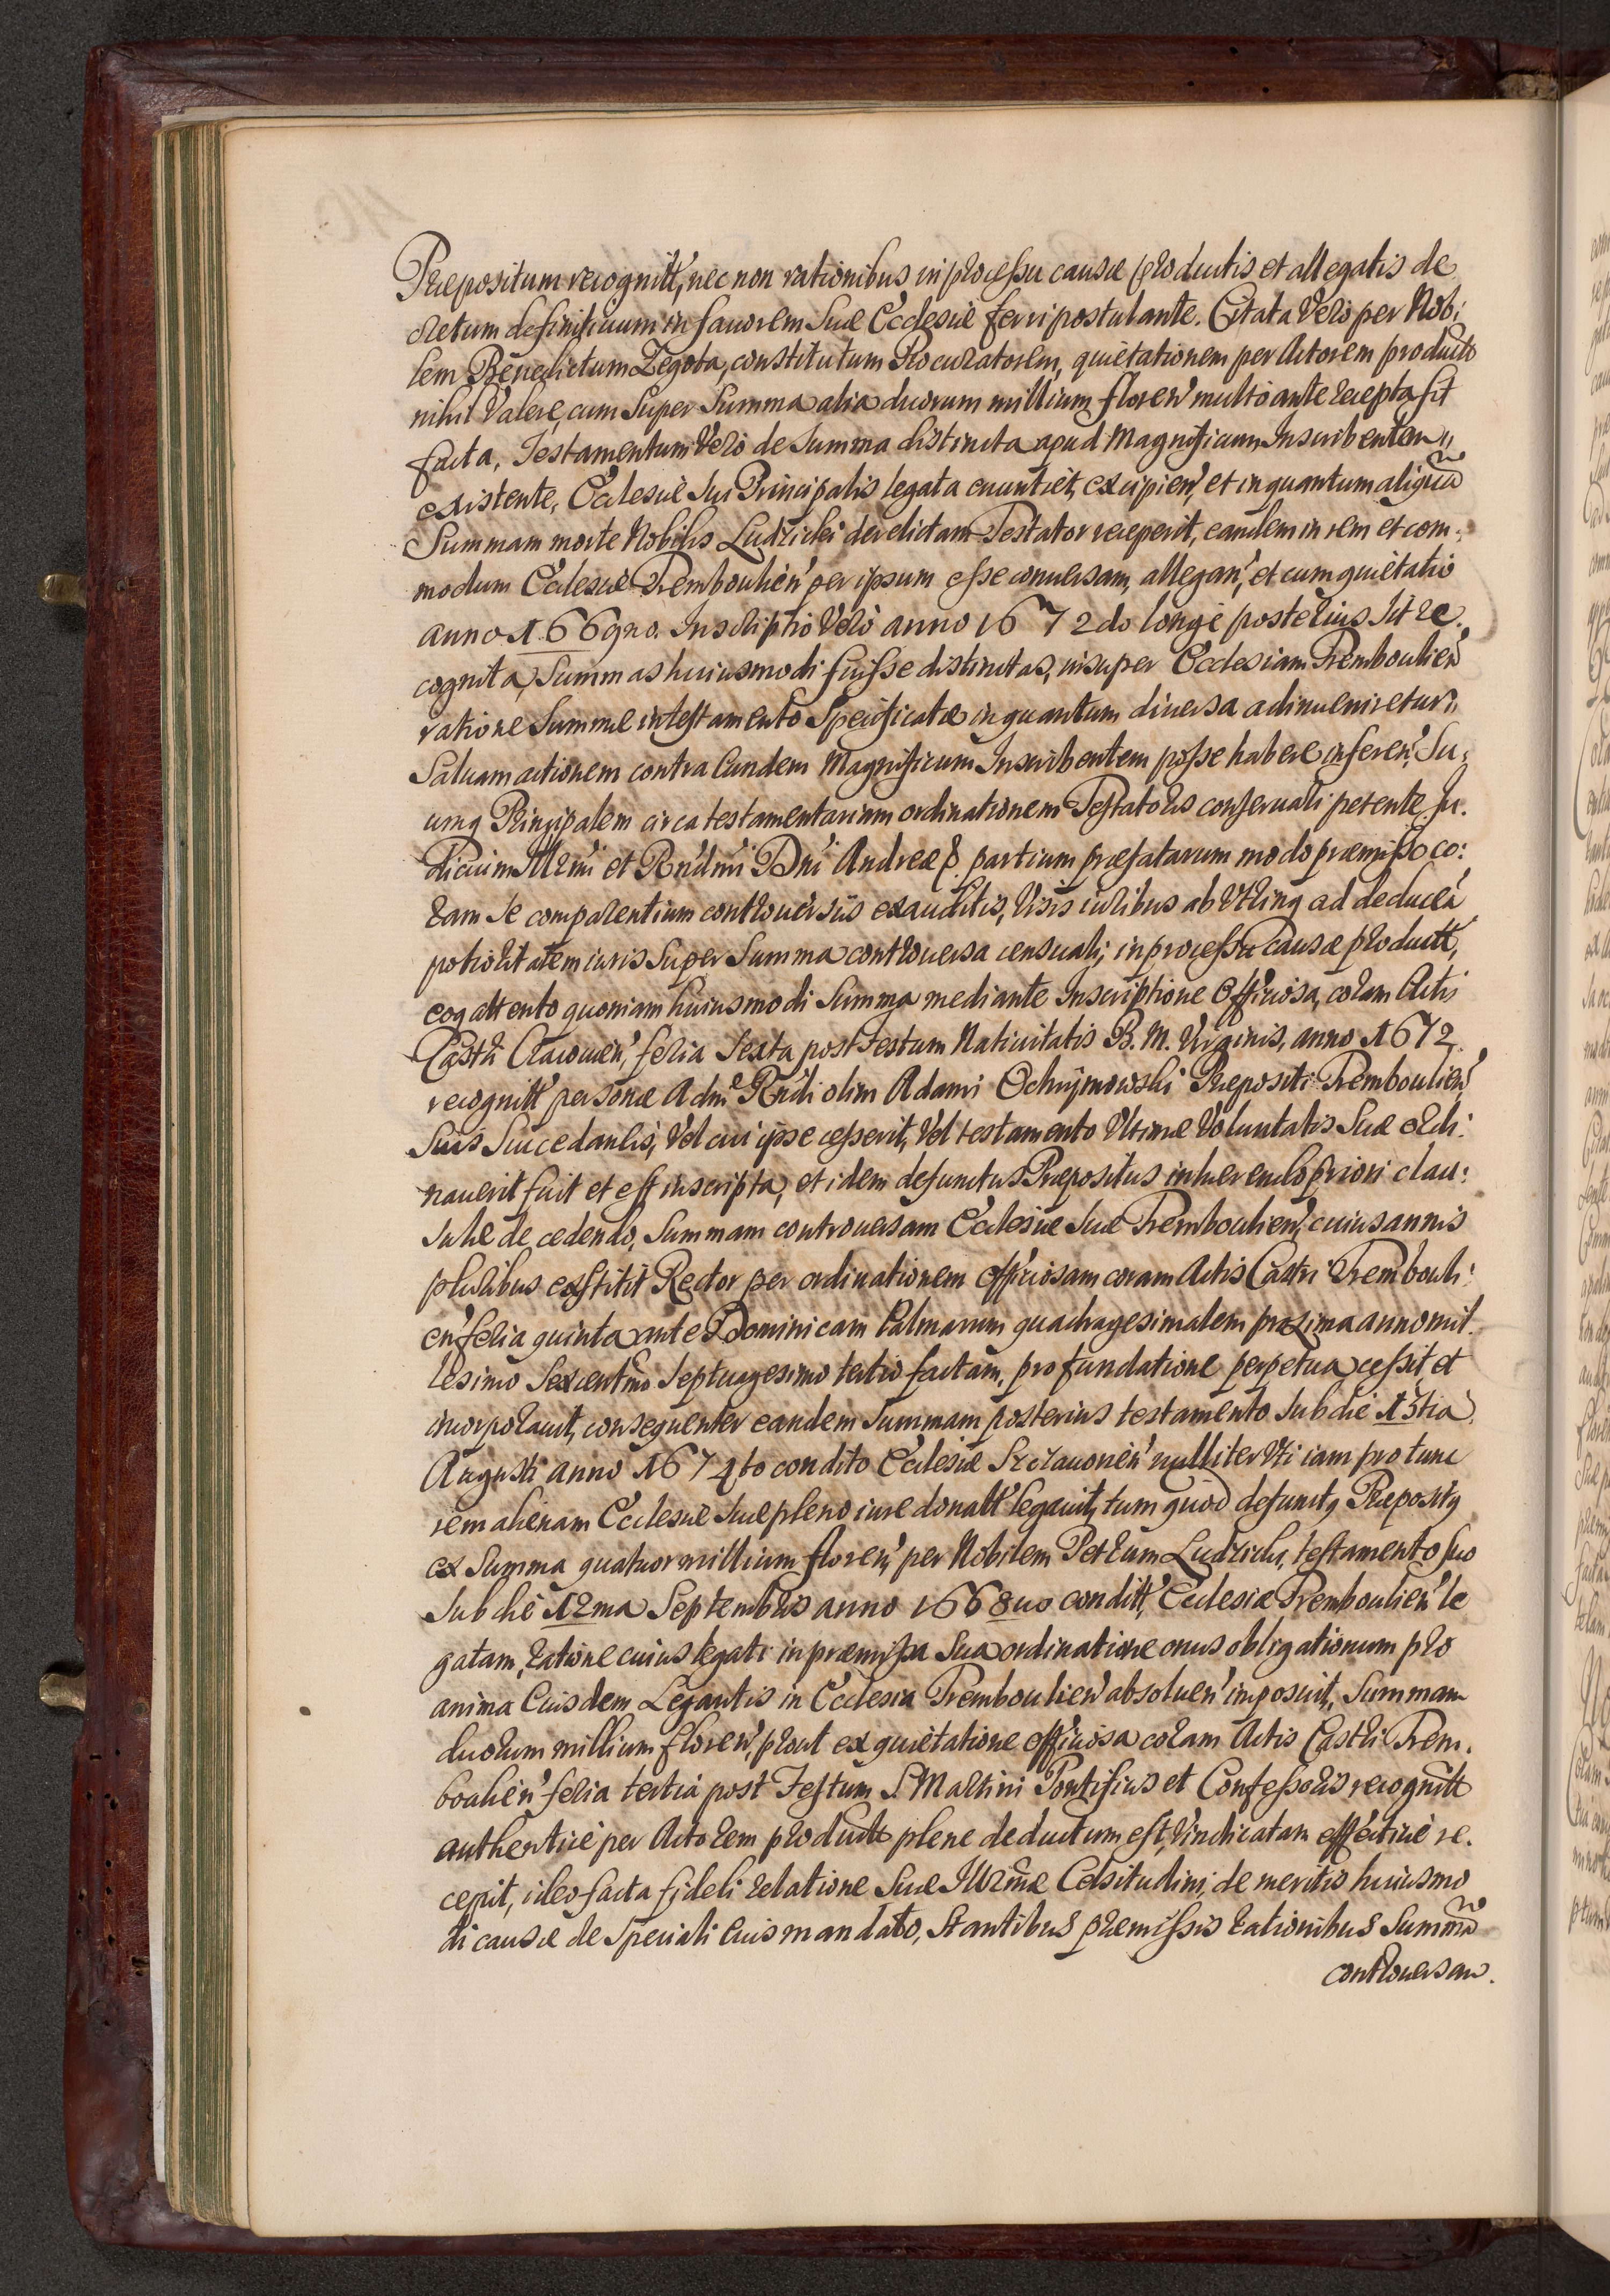 Præpositum recognitt, nec non rationibus in processu causæ productis et allegatis de
cretum definitiuum in fauorem Suæ Ecclesiæ ferri postulante. Citata Vero per Nobi:
lem Benedictum Zegota, constitutum Procuratorem, quietationem per Actorem product
nihil Valere, cum Super Summa alia duorum millium floren' multo ante recepta sit
facta, Testamentum Vero de Summa distincta apud Magnificum Inscribentem
existente, Ecclesiæ Sui Principalis legata enuntiet, excipien', et in quantum aliquã
Summam morte Nobilis Ludzicki derelictam Testator receperit, eandem in rem et com:
modum Ecclesiæ Tremboulien' per ipsum esse conuersam, allegan', et cum quietatio
anno 1669no. Inscriptio Vero anno 1672do longe posterius sit re.
cognita, Summas huiusmodi fuisse distinctas, insuper Ecclesiam Tremboulien'
ratione Summæ in testamento Specificatæ in quantum diuersa adinueniretur,
Saluam actionem contra Eundem Magnificum Inscribentem posse habere inferen', Su:
umq Principalem circa testamentariam ordinationem Testatoris conseruari petente. Ju.
dicium Illrmi et Rndmi Dni Andreæ &. partium præfatarum modo præmisso co:
ram Se comparentium controuersiis exauditis, Visis iuribus ab Vtrinq ad deducen'
potioritatem iuris Super Summa controuersa censuali, in processu Causæ productt,
eoq attento quoniam huiusmodi Summa mediante Inscriptione Officiosa, coram Actis
Castri Cracouien', feria Sexta post festum Natiuitatis B. M. Virginis, anno 1672
recognitt personæ Adm Rndi olim Adami Ochrymowski Præpositi Tremboulien'
Suis Succedaneis, Vel cui ipse cesserit, Vel testamento Vltimæ Voluntatis Suæ ordi:
nauerit fuit et est inscripta, et idem defunctus Præpositus inhærendo priori clau:
sulæ de cedendo, Summam controuersam Ecclesiæ Suæ Tremboulien', cuius annis
pluribus exstitit Rector per ordinationem officiosam coram Actis Castri Trembouli:
en' feria quinta ante Dominicam Palmarum quadragesimalem proxima anno mil.
lesimo Sexcentmo Septuagesimo tertio factam, pro fundatione perpetua cessit et
incorporauit, consequenter eandem Summam posterius testamento Sub die 13tia
Augusti anno 1674to condito Ecclesiæ nulliter Vti iam pro tunc
rem alienam Ecclesiæ Suæ pleno iure donatt legauit, tum quod defunctq Præpositq
ex Summa quatuor millium floren', per Nobilem Petrum Ludzicki, testamento suo
Sub die 12ma Septembris anno 1668uo conditt, Ecclesiæ Tremboulien' le
gatam, ratione cuius legati in præmissa Sua ordinatione onus obligationum pro
anima Eiusdem Legantis in Ecclesia Tremboulien' absoluen' imposuit, Summam
duorum millium floren', prout ex quietatione officiosa coram Actis Castri Trem.
boulien' feria tertia post Festum S. Martini Pontificis et Confessoris recognitt
authentice per Actorem productt plene deductum est, Vindicatam effectiue re.
cepit, ideo facta fideli relatione Suæ Illrmæ Celsitudini, de meritis huiusmo
di causæ de Speciali Eius mandato, Stantibus præmissis rationibus Summã
controuersam.